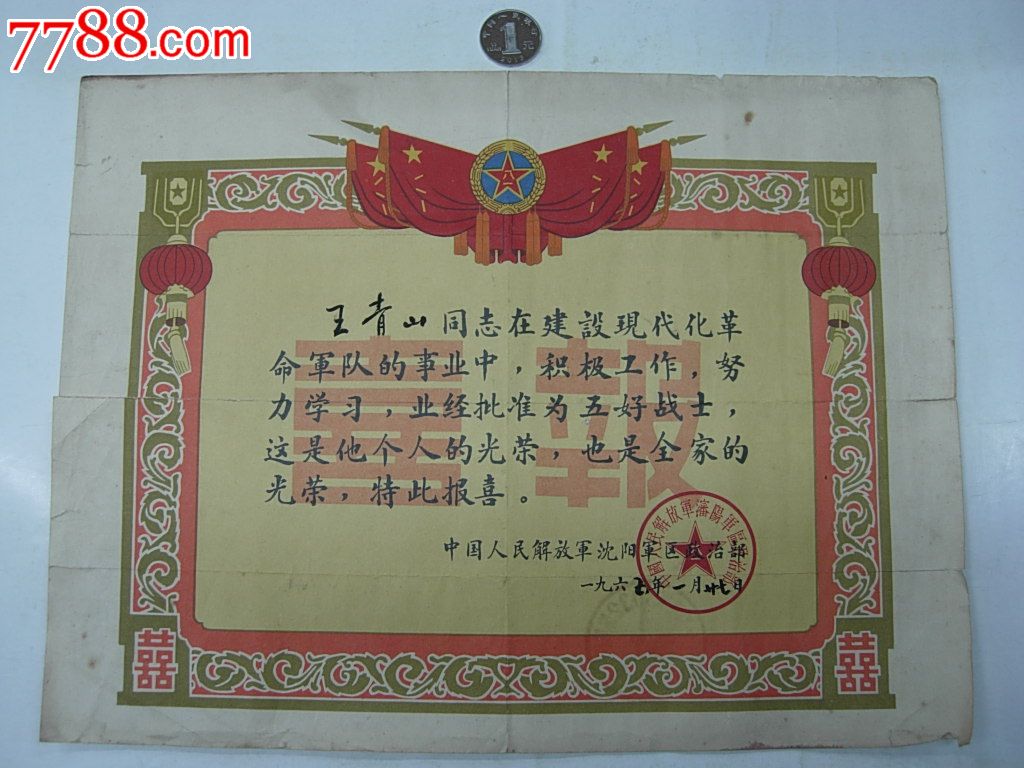 7788.com
1
元
王青山同志在建設現代化革
命軍队的事业中，积极工作，努
力学习，业经批准为五好战士，
这是他个人的光荣，也是全家的
光荣，特此报喜。
喜報
中国人民解放軍沈阳軍区政治部
中國人民解放軍瀋陽軍區政治部
一九六七年一月廿七日
囍
囍